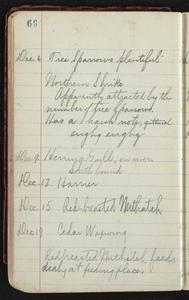 66
Dec. 6 Tree Sparrows plentiful
Northern Shrike
Apparently attracted by the
number of tree sparrows.
Has a harsh note, guttural
Dec. 9 Herring Gull, on
south bound
Dec. 12 Harrier
Dec. 15 Red-breasted Nuthatch
Dec 19 Cedar Waxwing
Redbreasted Nuthatch, feeds
at feeding place.